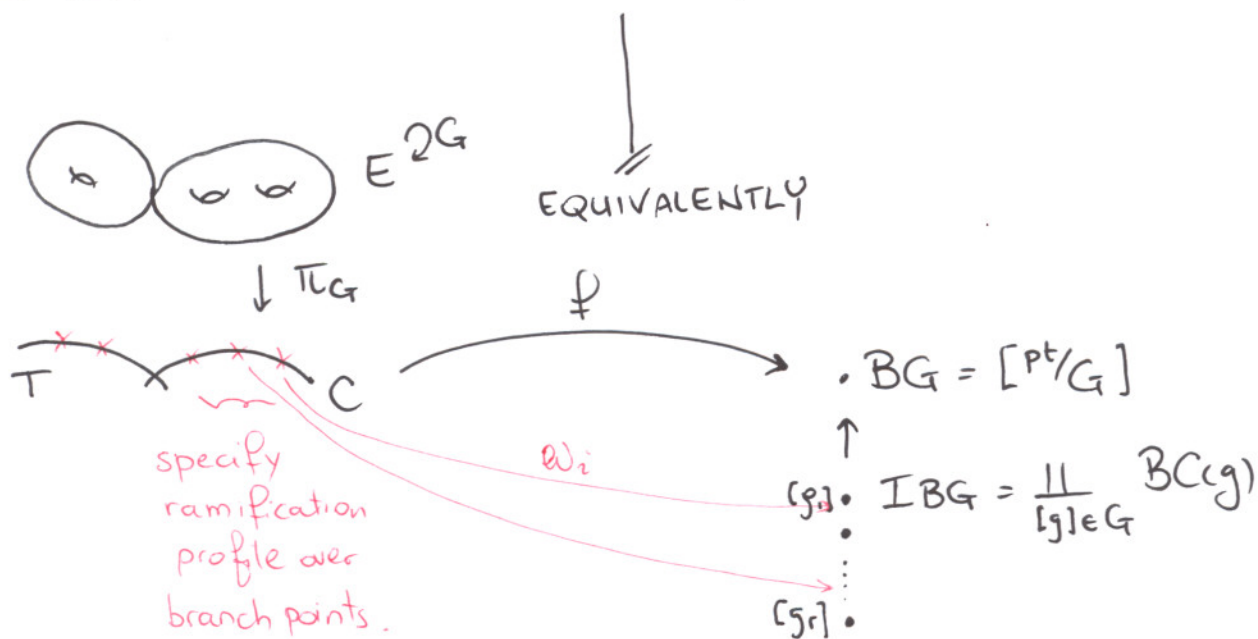 E↻G
EQUIVALENTLY
π_G
f
T C
• BG = [pt/G]
specify
ramification
profile over
branch points.
ev_i
[g_1] • IBG = ∐_{[g]∈G} BC(g)
[g_r] •